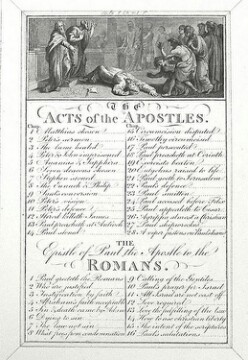 THE
ACTS of the APOSTLES.
Chap.
1 Matthias chosen
2 Peter's sermon
3 The lame healed
4 Peter & John imprisoned
5 Ananias & Sapphira
6 Seven deacons chosen
7 Stephen stoned
8 The Eunuch & Philip
9 Paul's conversion
10 Peter's vision
11 Peter's defence
12 Herod killeth James
13 Paul preacheth at Antioch
14 Paul stoned
Chap.
15 Circumcision disputed
16 Timothy circumcised
17 Paul persecuted
18 Paul preacheth at Corinth
19 Exorcists beaten
20 Eutychus raised to life
21 Paul goeth to Jerusalem
22 Paul's defence
23 Paul smitten
24 Paul accused before Felix
25 Paul appealeth to Caesar
26 Agrippa almost a Christian
27 Paul shipwrecked
28 A viper
THE
Epistle of Paul the Apostle to the
ROMANS.
1 Paul greeteth the Romans
2 Who are justified
3 Justification by faith
4 Abraham's faith
5 Sin & death came by Adam
6 Dying to sin
7 The law not sin
8 What frees from condemnation
9 Calling of the Gentiles
10 Paul's prayer for Israel
11 All Israel are not cast off
12 Love required
13 Love the fulfilling of the law
14 How to use christian liberty
15 The intent of the scriptures
16 Paul's salutations